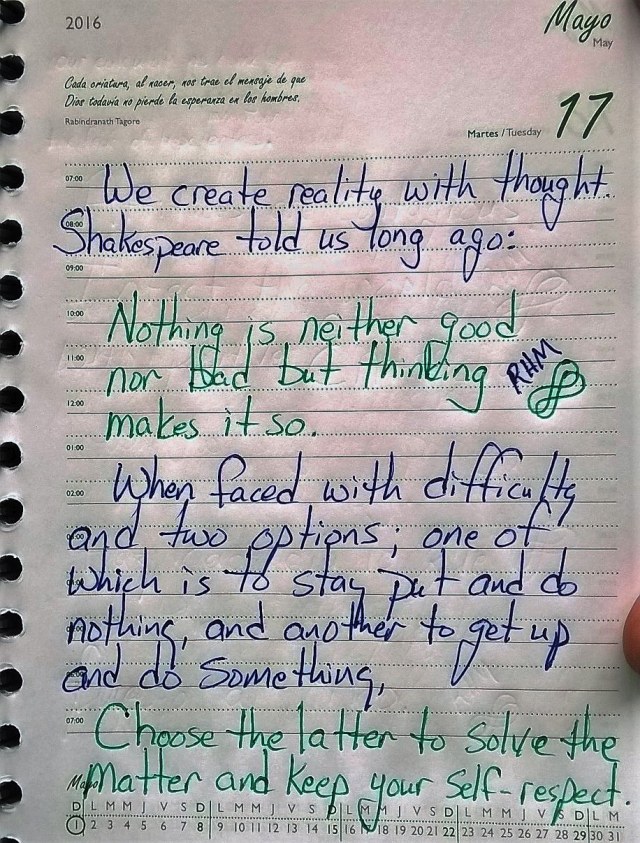 2016
Mayo
May
Cada criatura, al nacer, nos trae el mensaje de que
Dios todavía no pierde la esperanza en los hombres.
Rabindranath Tagore
Martes / Tuesday 17
07:00 We create reality with thought.
08:00 Shakespeare told us long ago:
09:00
10:00 Nothing is neither good
11:00 nor bad but thinking RHM
12:00 makes it so.
01:00
02:00 When faced with difficulty
and two options; one of
which is to stay put and do
nothing, and another to get up
and do something,
07:00 Choose the latter to solve the
Mayo Matter and keep your self-respect.
D L M M J V S D L M M J V S D L M M J V S D L M M J V S D L M
1 2 3 4 5 6 7 8 9 10 11 12 13 14 15 16 17 18 19 20 21 22 23 24 25 26 27 28 29 30 31